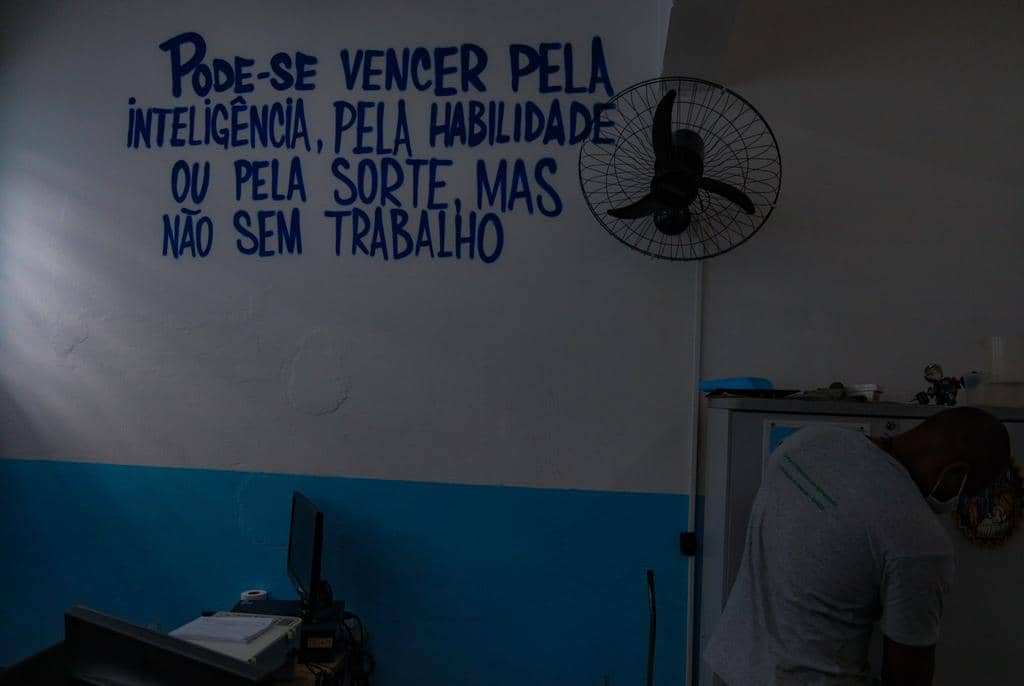 PODE-SE VENCER PELA
INTELIGÊNCIA, PELA HABILIDADE
OU PELA SORTE, MAS
NÃO SEM TRABALHO